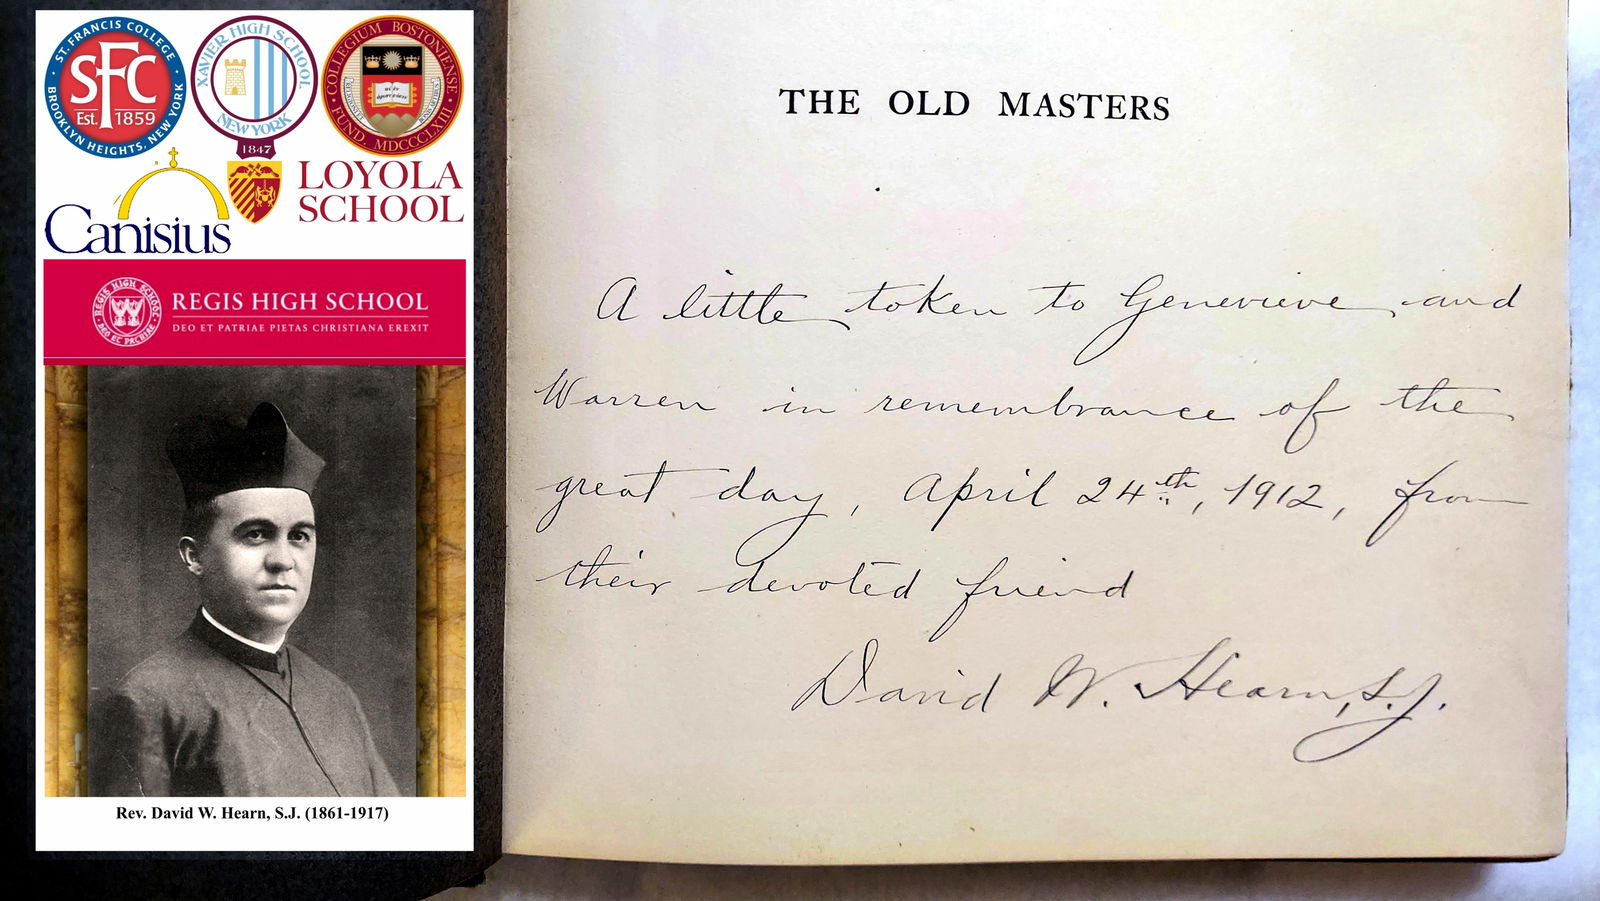 ST. FRANCIS COLLEGE
SFC
Est. 1859
BROOKLYN HEIGHTS, NEW YORK
XAVIER HIGH SCHOOL
NEW YORK
1847
COLLEGIUM BOSTONIENSE
FUND. MDCCCLXIII
Canisius
LOYOLA
SCHOOL
REGIS HIGH SCHOOL
DEO ET PATRIAE PIETAS CHRISTIANA EREXIT
REGIS HIGH SCHOOL
DEO ET PATRIAE
Rev. David W. Hearn, S.J. (1861-1917)
THE OLD MASTERS
A little token to Genevieve and
Warren in remembrance of the
great day, April 24th, 1912, from
their devoted friend
David W. Hearn, S.J.